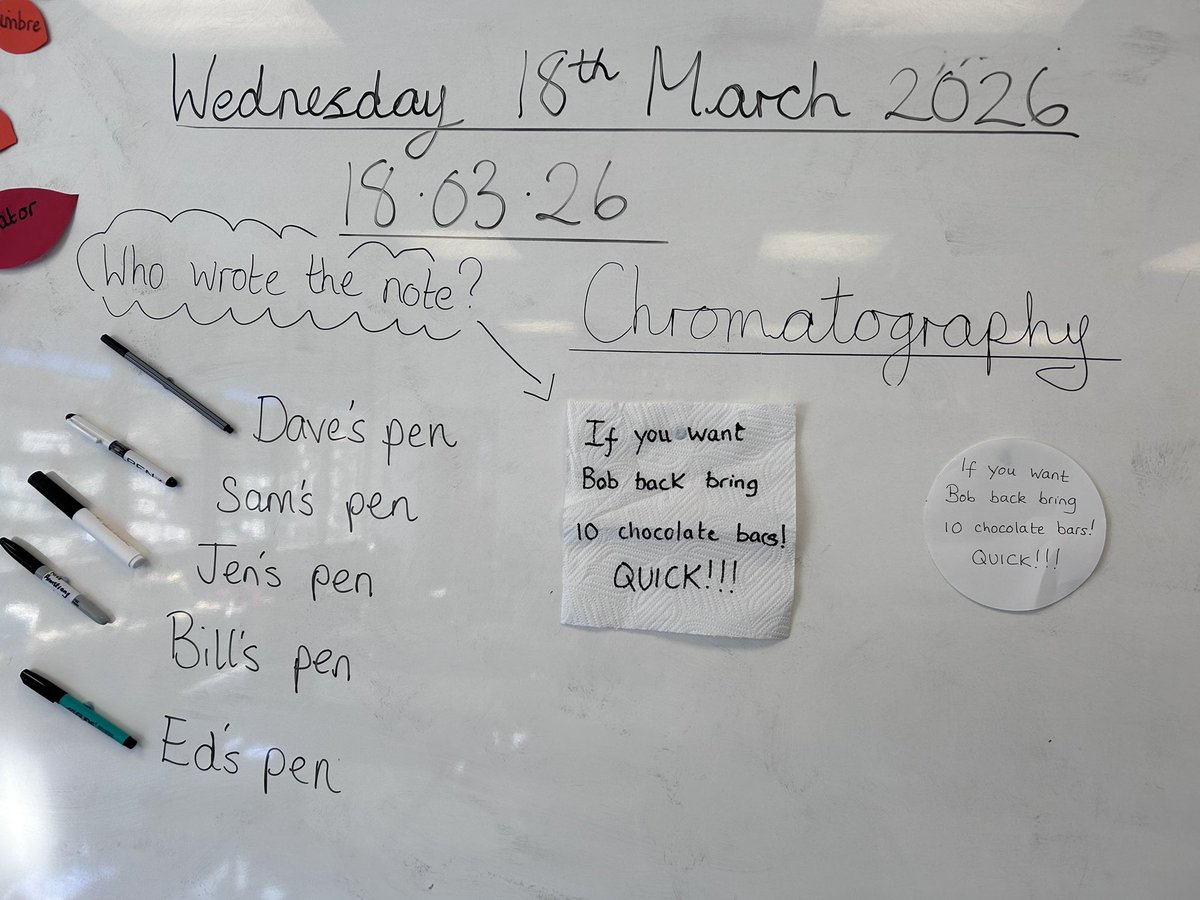 Wednesday 18th March 2026
18.03.26
Who wrote the note?
Chromatography
Dave's pen
Sam's pen
Jen's pen
Bill's pen
Ed's pen
If you want
Bob back bring
10 chocolate bars!
QUICK!!!
If you want
Bob back bring
10 chocolate bars!
QUICK!!!